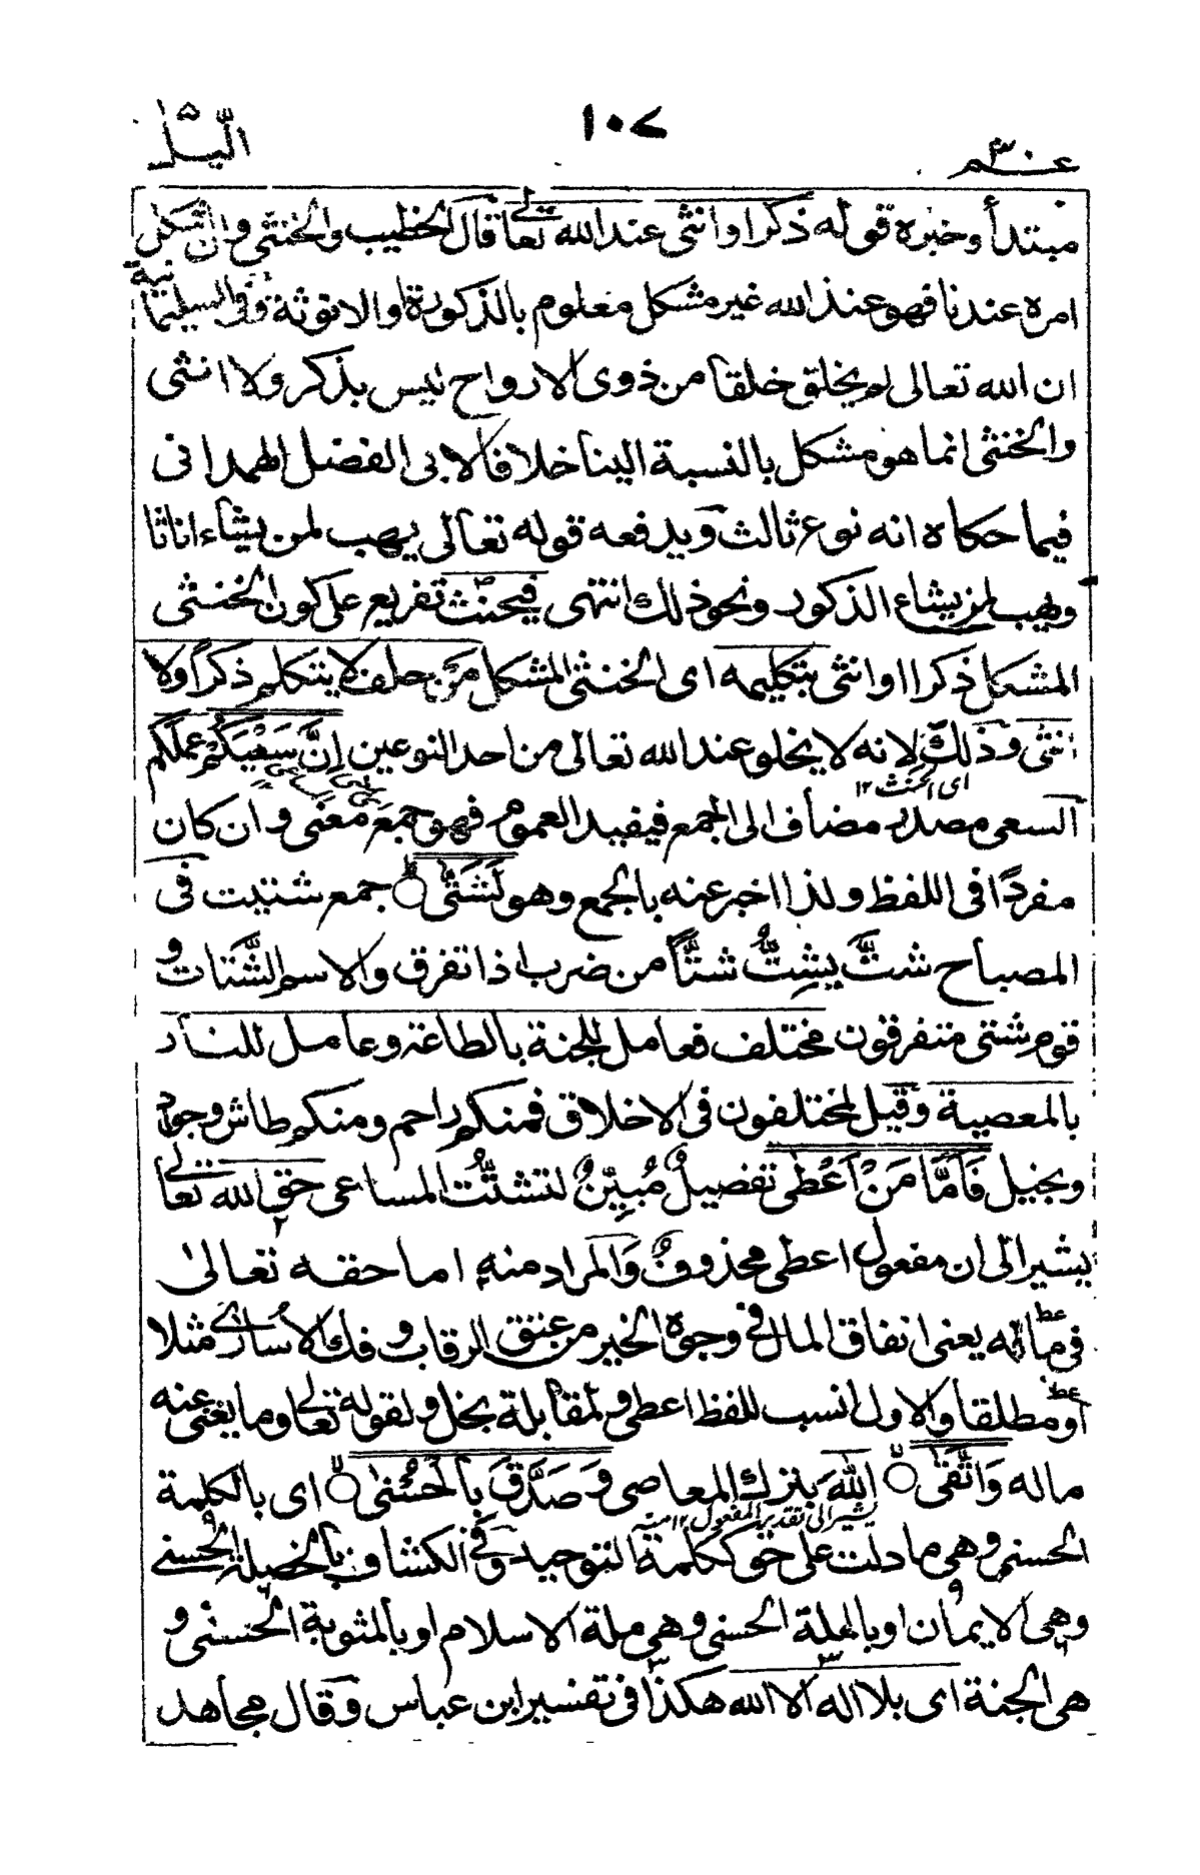 عـم ٣٠
١٠٧
الّيل
مبتدأ وخبره قوله ذكرا وانثى عند الله تعالى قال الخطيب والخنثى وان اشكل
امره عندنا فهو عند الله غير مشكل معلوم بالذكورة او الانوثة وفى السليمانية
ان الله تعالى لم يخلق خلقا من ذوى الارواح ليس بذكر ولا انثى
والخنثى انما هو مشكل بالنسبة الينا خلافا لابى الفضل الهمدانى
فيما حكاه انه نوع ثالث ويدفعه قوله تعالى يهب لمن يشاء اناثا
ويهب لمن يشاء الذكور ونحو ذلك انتهى فيحنث تفريع على كون الخنثى
المشكل ذكرا او انثى بتكليمه اى الخنثى المشكل من حلف لا يتكلم ذكراً ولا
انثى وذلك لانه لا يخلو عند الله تعالى من احد النوعين اِنَّ سَعْيَكُمْ عملكم
اى الحنث ١٢
السعى مصدر مضاف الى الجمع فيفيد العموم فهو جمع معنى وان كان
مفردًا فى اللفظ ولذا اخبر عنه بالجمع وهو لَشَتّٰى جمع شتيت فى
المصباح شتَّ يشِتُّ شتًّا من ضرب اذا تفرق والاسم الشَّتات و
قوم شتى متفرقون مختلف فعامل للجنة بالطاعة وعامل للنار
بالمعصية وقيل لمختلفون فى الاخلاق فمنكم راحم ومنكم طاش وجواد
وبخيل فَاَمَّا مَنْ اَعْطٰى تفصيلٌ مُبيِّنٌ لتشتُّت المساعى حق الله تعالى
يشير الى ان مفعول اعطى محذوفٌ والمراد منه اما حقه تعالىٰ
فى ماله يعنى انفاق المال فى وجوه الخير من عتق الرقاب وفك الاُسارى مثلا
او مطلقا والاول انسب للفظ اعطى ولمقابلة بخل ولقوله تعالى وما يغنى عنه
ماله وَاتَّقٰى اللهَ بترك المعاصى وَصَدَّقَ بِالْحُسْنٰى اى بالكلمة
يشير الى تقدير المفعول ١٢ منه
الحسنى وهى ما دلت على حق ككلمة التوحيد وفى الكشاف بالخصلة الحسنى
وهى الايمان او بالملة الحسنى وهى ملة الاسلام او بالمثوبة الحسنى و
هى الجنة اى بلا اله الا الله هكذا فى تفسير ابن عباس وقال مجاهد